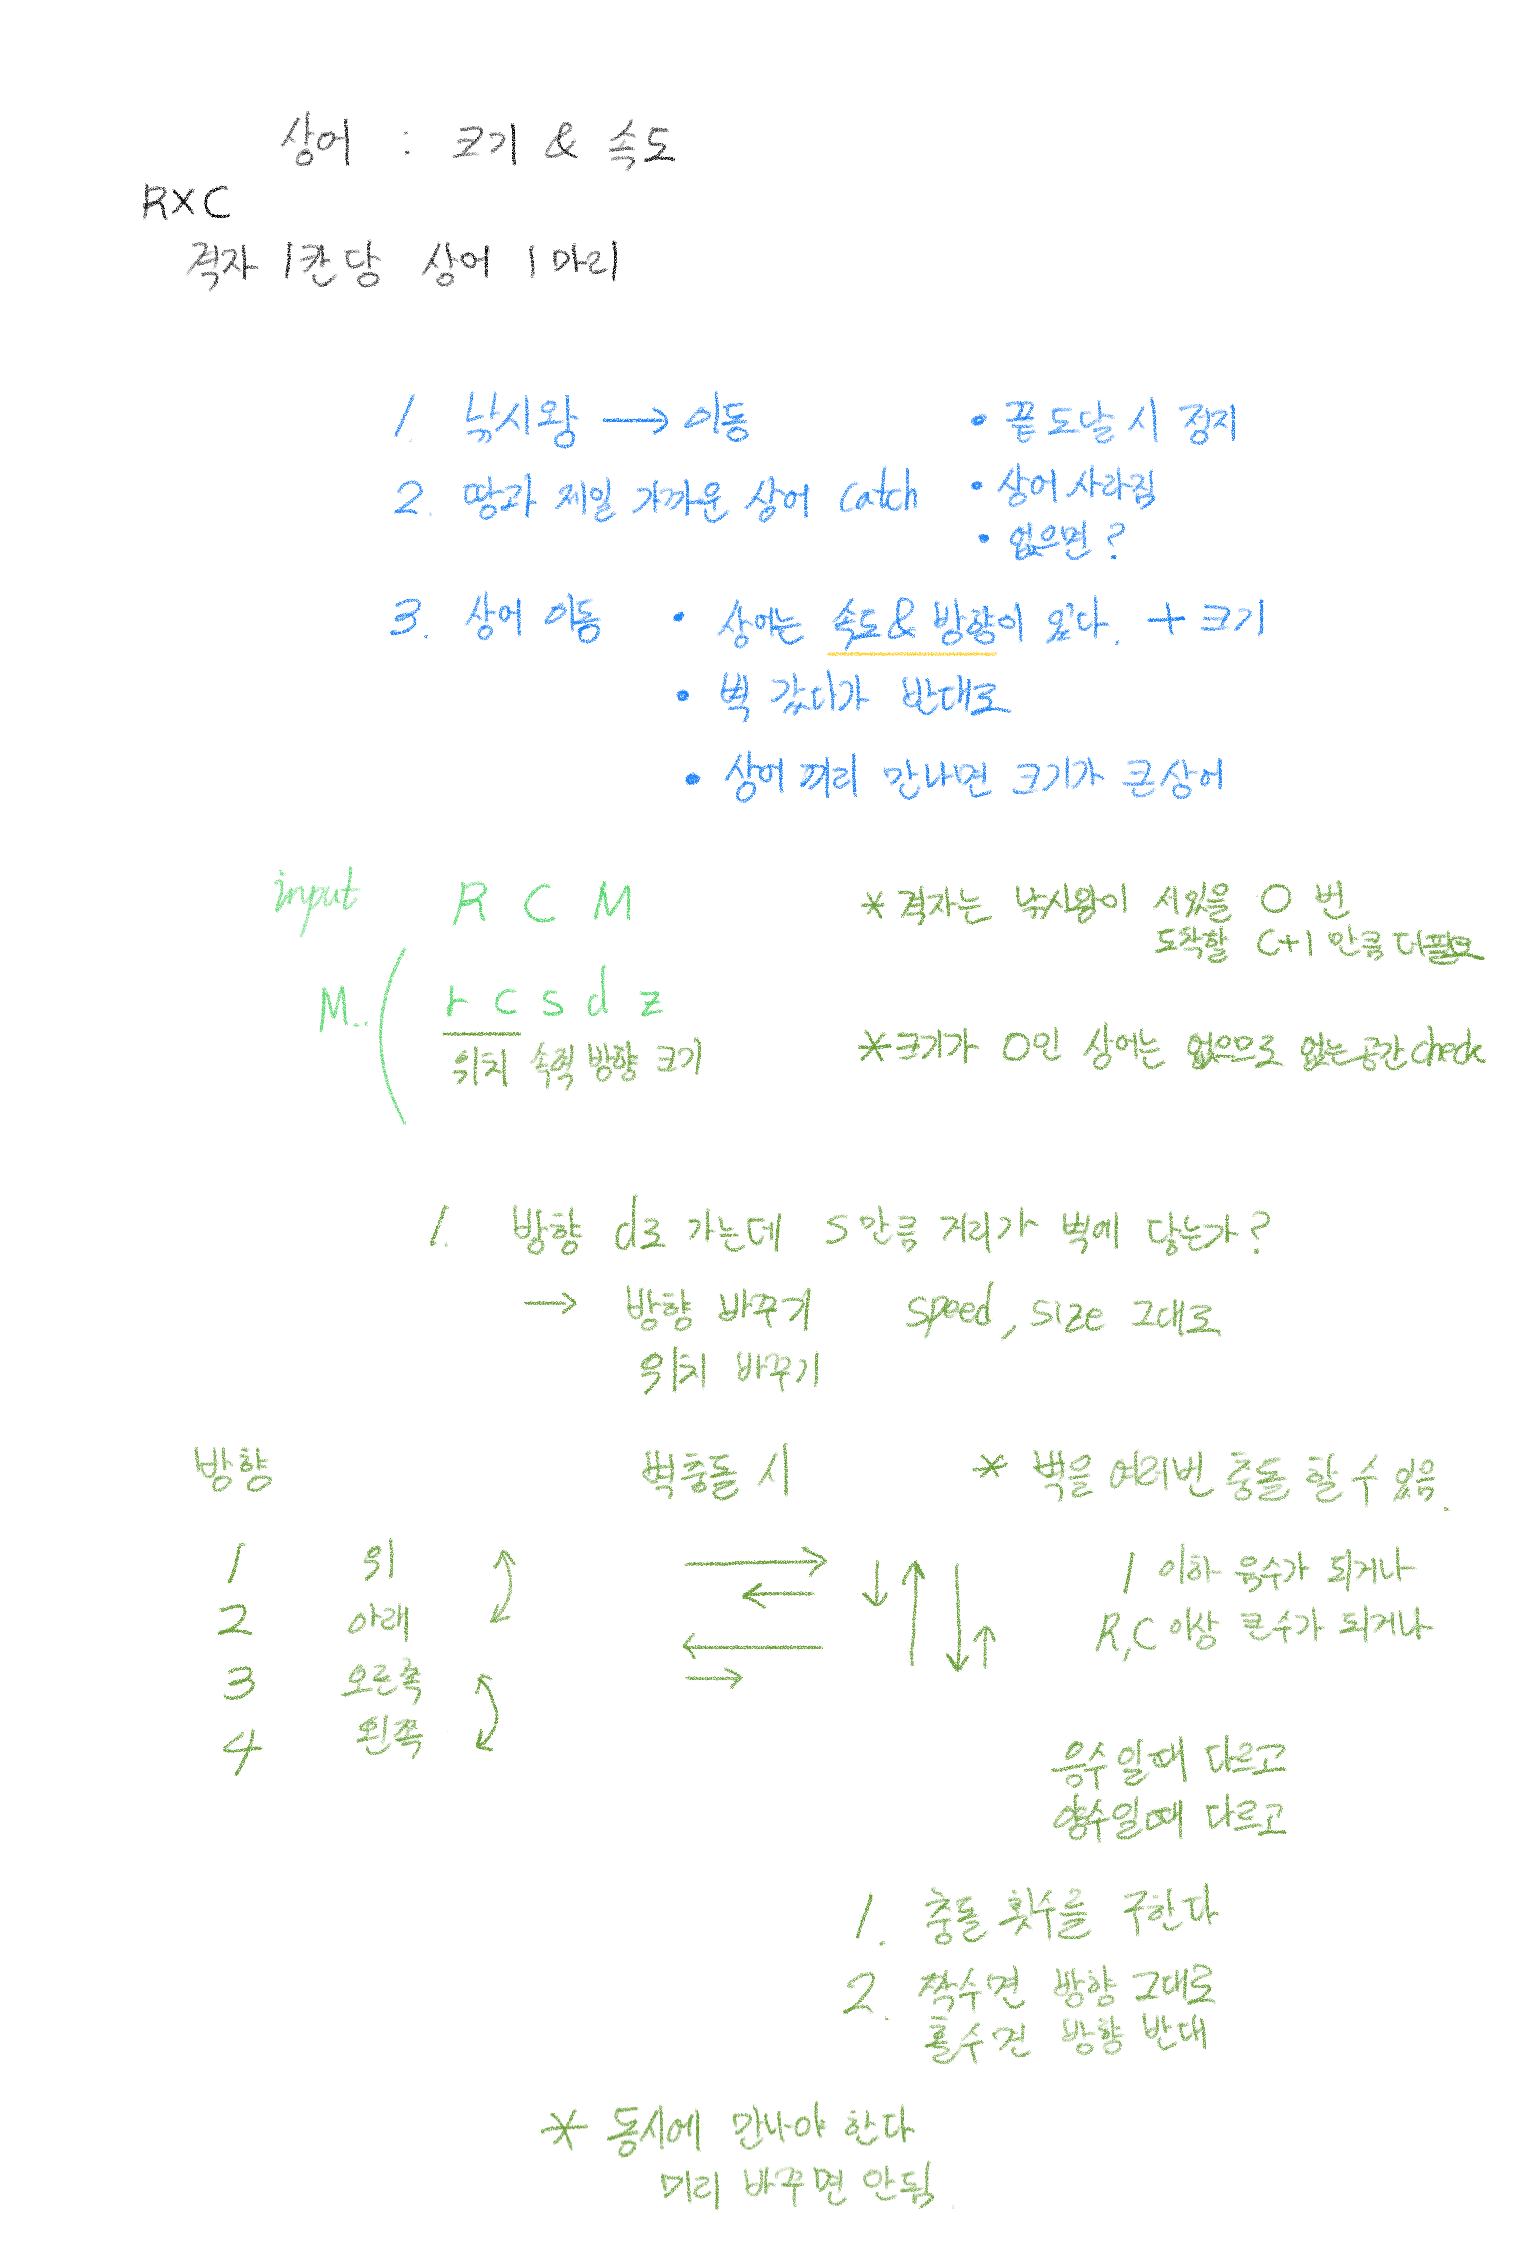 상어 : 크기 & 속도
R×C
격자 1칸당 상어 1마리
1. 낚시왕 → 이동
• 끝 도달 시 정지
2. 땅과 제일 가까운 상어 catch
• 상어 사라짐
• 없으면?
3. 상어 이동
• 상어는 속도 & 방향이 있다. + 크기
• 벽 갔다가 반대로
• 상어끼리 만나면 크기가 큰 상어
input R C M
M.. ( r c s d z
위치 속력 방향 크기
* 격자는 낚시왕이 서있을 0번
도착할 C+1 만큼 더 필요
* 크기가 0인 상어는 없으므로 없는 공간 check
1. 방향 d로 가는데 s만큼 거리가 벽에 닿는가?
→ 방향 바꾸기 speed, size 그대로
위치 바꾸기
방향
1 위
2 아래
3 오른쪽
4 왼쪽
벽충돌 시
* 벽을 여러번 충돌 할 수 있음.
1 이하 음수가 되거나
R,C 이상 큰수가 되거나
음수일때 다르고
양수일때 다르고
1. 충돌 횟수를 구한다
2. 짝수면 방향 그대로
홀수면 방향 반대
* 동시에 만나야 한다
미리 바꾸면 안됨.